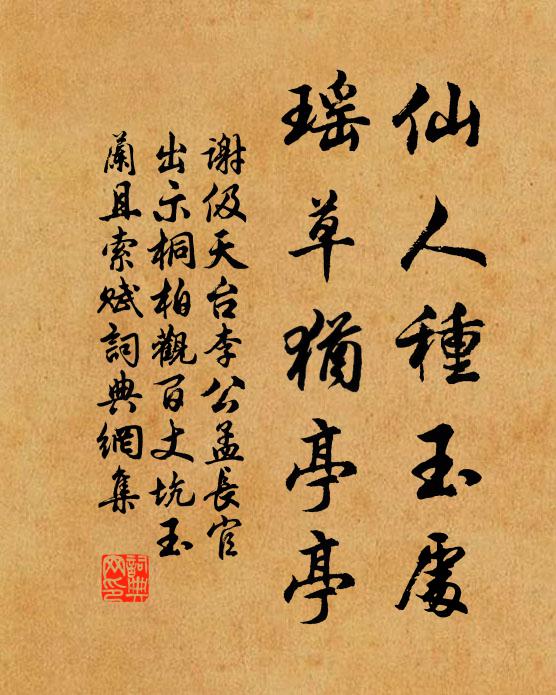 仙人種玉處
瑤草猶亭亭
謝伋天台李公孟長官
出示桐柏觀百丈坑玉
蘭且索賦詞典網集
詞典
网印